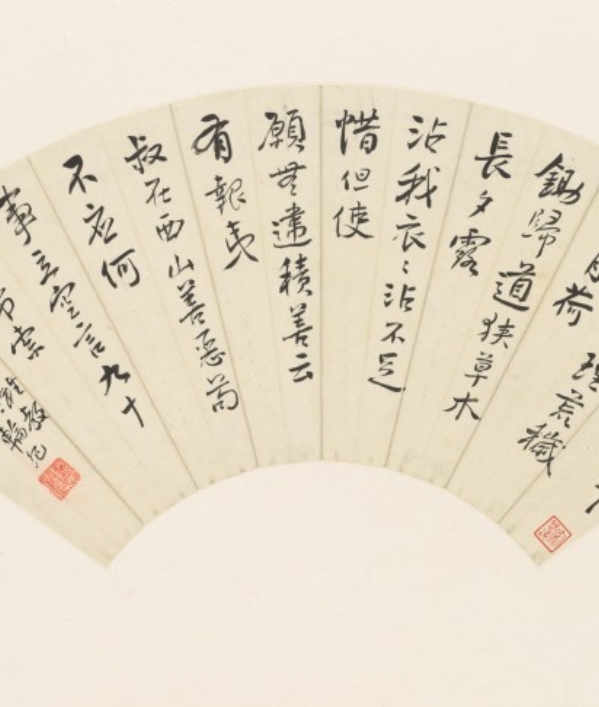 理荒穢
月荷
鋤歸道狹草木
長夕露
沾我衣〻沾不足
惜但使
願無違積善云
有報夷
叔在西山善惡苟
不應何
事立空言九十
索